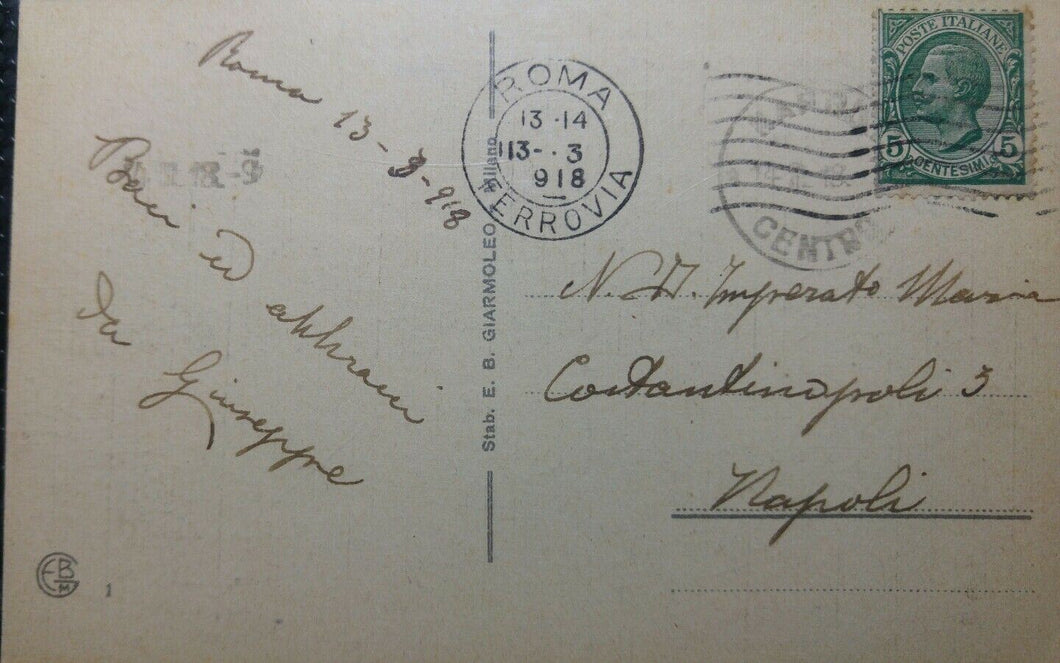 Roma 13-3-918
Baci ed abbracci
da Giuseppe
Stab. E. B. GIARMOLEO Milano
EBM
1
ROMA
13-14
13-.3
918
FERROVIA
CENTRO
POSTE ITALIANE
5 CENTESIMI 5
N. D. Imperato Maria
Costantinopoli 3
Napoli